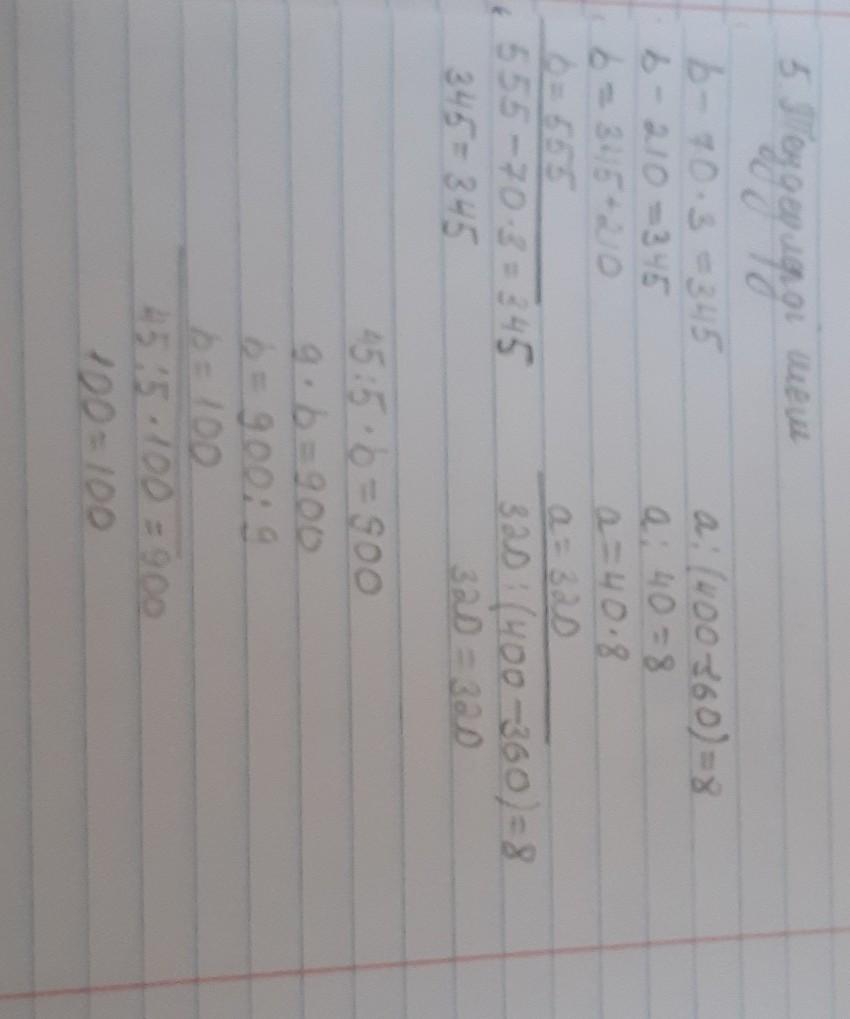 5 Теңдеулерді шеш
b - 70 · 3 = 345
b - 210 = 345
b = 345 + 210
b = 555
555 - 70 · 3 = 345
345 = 345
a : (400 - 360) = 8
a : 40 = 8
a = 40 · 8
a = 320
320 : (400 - 360) = 8
320 = 320
45 : 5 · b = 900
9 · b = 900
b = 900 : 9
b = 100
45 : 5 · 100 = 900
100 = 100